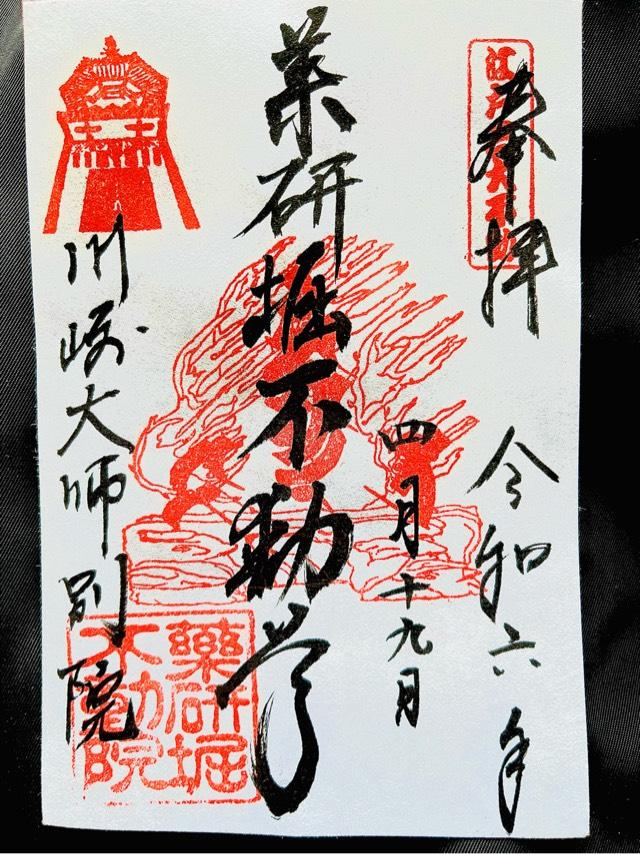 奉拝
江戸
大不動
令和六年
四月十九月
薬研堀不動尊
川崎大師別院
藥研堀
不動院